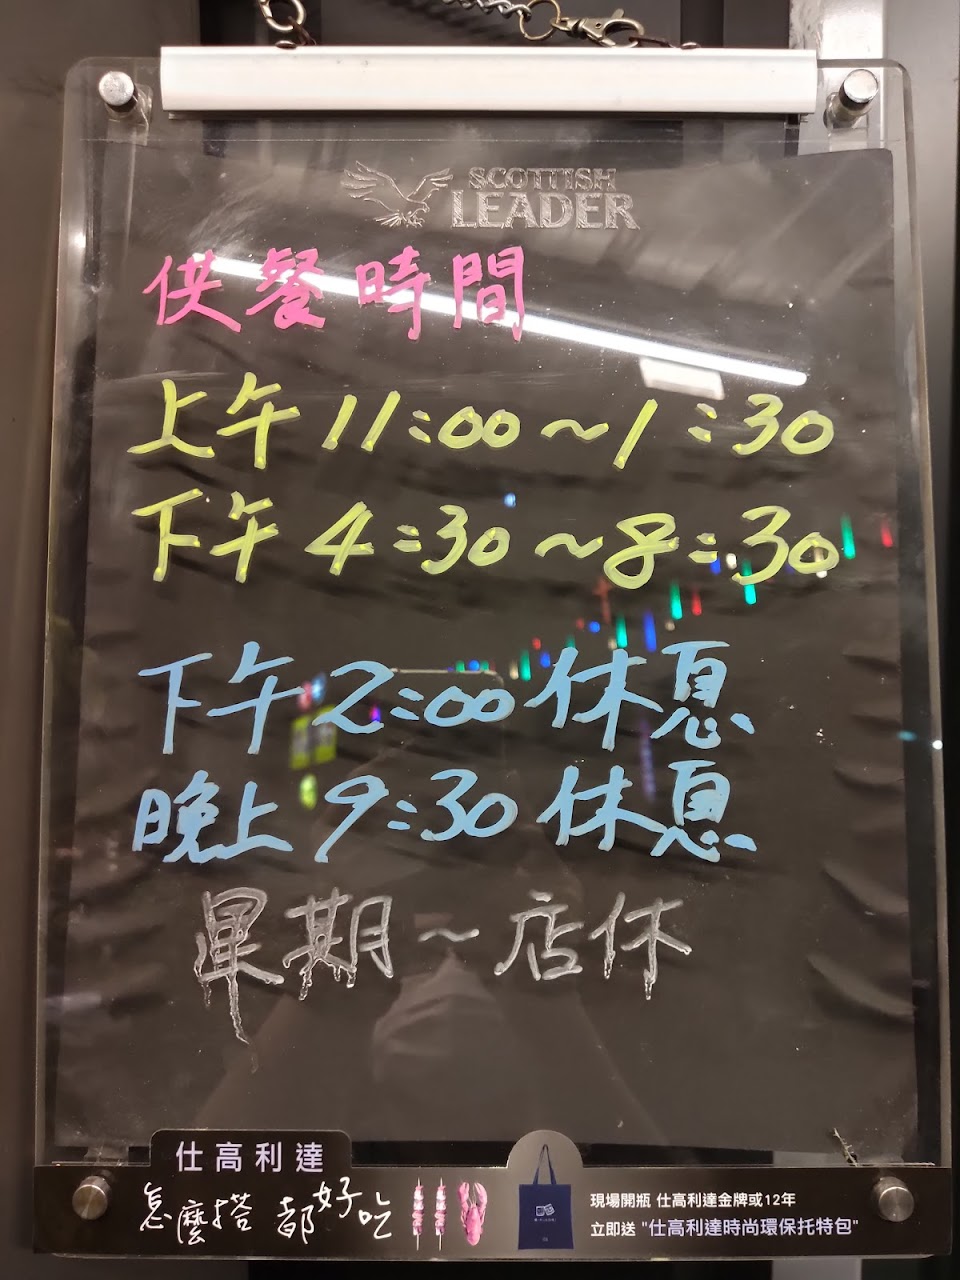 SCOTTISH
LEADER
供餐時間
上午11:00~1:30
下午4:30~8:30
下午2:00休息
晚上9:30休息
星期~店休
仕高利達
怎麼搭 都好吃
現場開瓶 仕高利達金牌或12年
立即送 "仕高利達時尚環保托特包"